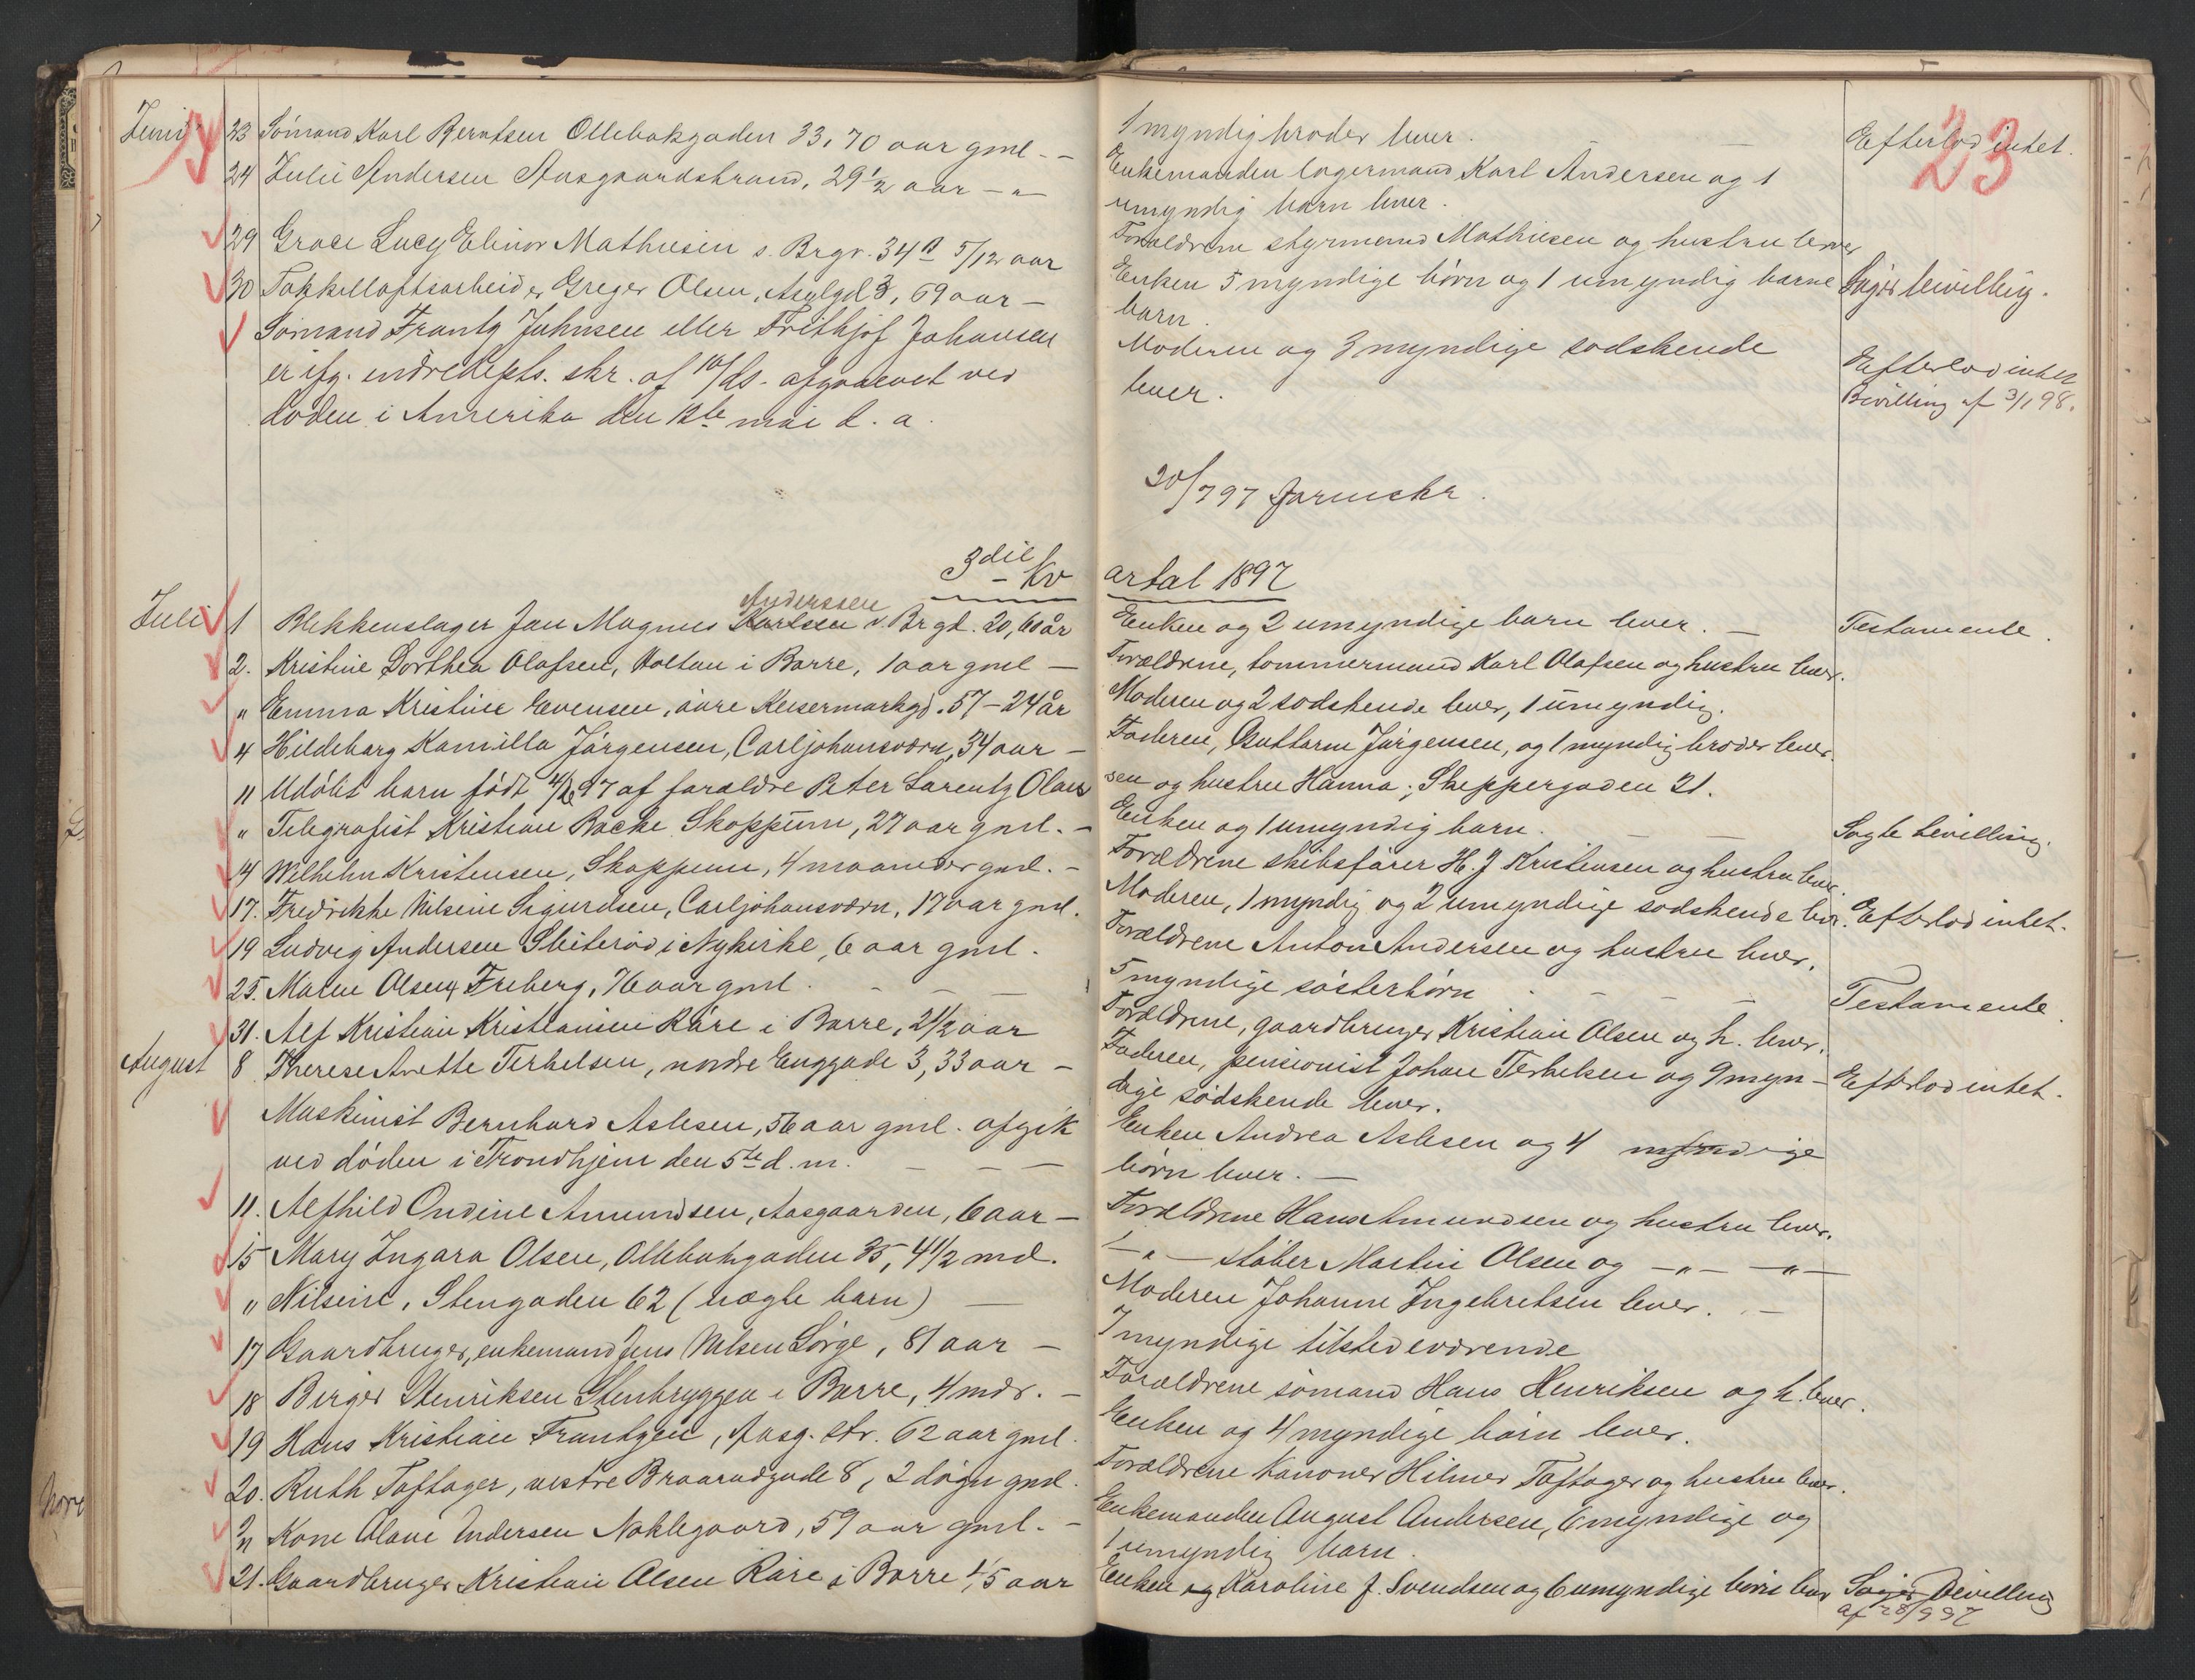 23
Juni 23 Sömand Karl Berntsen Ollebakgaden 33, 70 aar gml. -
1 myndig broder lever. Efterlod intet.
24 Julie Andersen Aasgaardstrand, 29 1/2 aar - " -
Enkemanden lagermand Karl Andersen og 1
umyndig barn lever.
29 Grace Lucy Elinor Mathiesen s. Brgr. 34 5/12 aar
Forældrene styrmand Mathiesen og hustru lever
30 Takkelloftsarbeider Greger Olsen, Asylgd 3, 69 aar -
Enken 5 myndige börn og 1 umyndig barne
barn. Söger bevilling.
Sömand Frantz Johnsen eller Frithjof Johansen
er ifg. indredepts. skr. af 10/ ds. afgaaet ved
döden i Amerika den 12te mai d. a.
Moderen og 3 myndige sødskende
lever.
Efterlod intet
Bevilling af 3/1 98.
20/7 97
3die Kvartal 1897
Juli 1 Blikkenslager Jan Magnus Karlsen Anderssen v. Brgd. 20, 60 år
Enken og 2 umyndige barn lever. - Testamente.
2. Kristine Dorthea Olafsen, Holtan i Borre, 1 aar gml -
Forældrene, tømmermand Karl Olafsen og hustru lever.
" Emma Kristine Evensen, övre Keisermarkgd. 57 - 24 år
Moderen og 2 sødskende lever, 1 umyndig.
4 Hildeborg Kamilla Jörgensen, Carljohansværn, 34 aar -
Faderen, Guttorm Jörgensen, og 1 myndig broder lever.
11 Udöbt barn född 4/6 97 af forældre Peter Lorentz Olaus
sen og hustru Hanna; Skeppergaden 21.
" Telegrafist Kristian Backe Skoppum, 27 aar gml. -
Enken og 1 umyndig barn. Søgte bevilling.
14 Wilhelm Kristensen, Skoppum, 4 maaneder gml. -
Forældrene skibsförer H. J Kristensen og hustru lever.
17. Fredrikke Nilsine Sigurdsen, Carljohansværn, 17 aar gml.
Moderen, 1 myndig og 2 umyndige sødskende lever. Efterlod intet.
19 Ludvig Andersen Sletterød i Nykirke, 6 aar gml.
Forældrene Anton Andersen og hustru lever.
25. Maren Olsen, Freberg, 76 aar gml. - - -
5 myndige sösterbörn - - - Testamente.
31. Alf Kristian Kristiansen Råre i Borre, 2 1/2 aar
Forældrene, gaardbruger Kristian Olsen og h. lever.
August 8 Therese Anette Terkelsen, nordre Enggade 3, 33 aar -
Faderen, pensionist Johan Terkelsen og 9 myn-
dige sødskende lever. Efterlod intet.
Maskinist Bernhard Aslesen, 56 aar gml. afgik
ved döden i Trondhjem den 5te d. m. - - -
Enken Andrea Aslesen og 4 myndige
börn lever. -
11. Alfhild Ondine Amundsen, Aasgaarden, 6 aar -
Forældrene Hans Amundsen og hustru lever.
15 Mary Ingara Olsen, Ollebakgaden 35, 4 1/2 md.
- " - støber Martin Olsen og - " - - " -
" Nilsine, Stengaden 62 (uægte barn) -
Moderen Johanne Ingebretsen lever. -
17 Gaardbruger, enkemand Jens Nilsen Lörge, 81 aar -
7 myndige tilstedeværende
18 Birger Henriksen Stenbryggen i Borre, 4 mdr. -
Forældrene sömand Hans Henriksen og h. lever.
19 Hans Kristian Frantzen, Aasg. str. 62 aar gml.
Enken og 4 myndige börn lever.
20. Ruth Toftager, vestre Braarudgade 8, 2 dögn gml.
Forældrene Kanoner Hilmer Toftager og hustru lever.
" Kone Olave Andersen Noklegaard, 59 aar gml. -
Enkemanden August Andersen, 6 myndige og
1 umyndig barn.
21. Gaardbruger Kristian Olsen Råre i Borre 45 aar
Enken og Karoline f. Svendsen og 6 umyndige börn lever Söger Bevilling
af 28/9 97